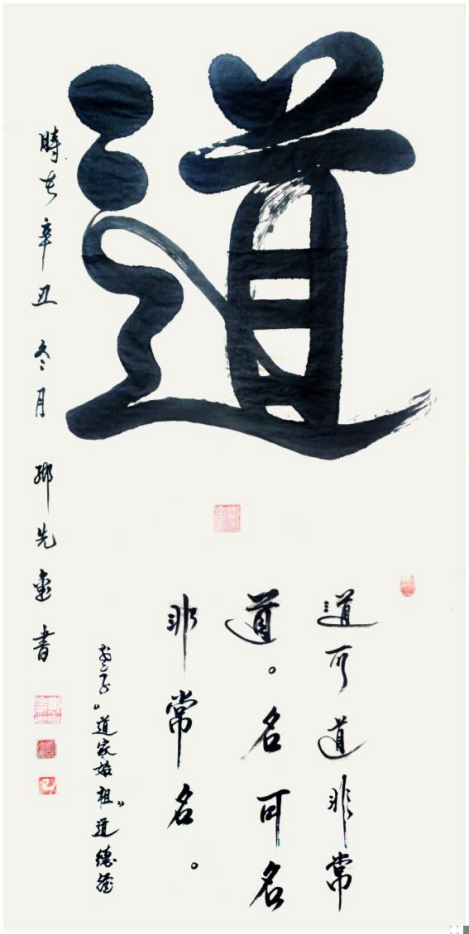 道
道可道非常
道。名可名
非常名。
“道家始祖”道德經
時在辛丑冬月 先 書